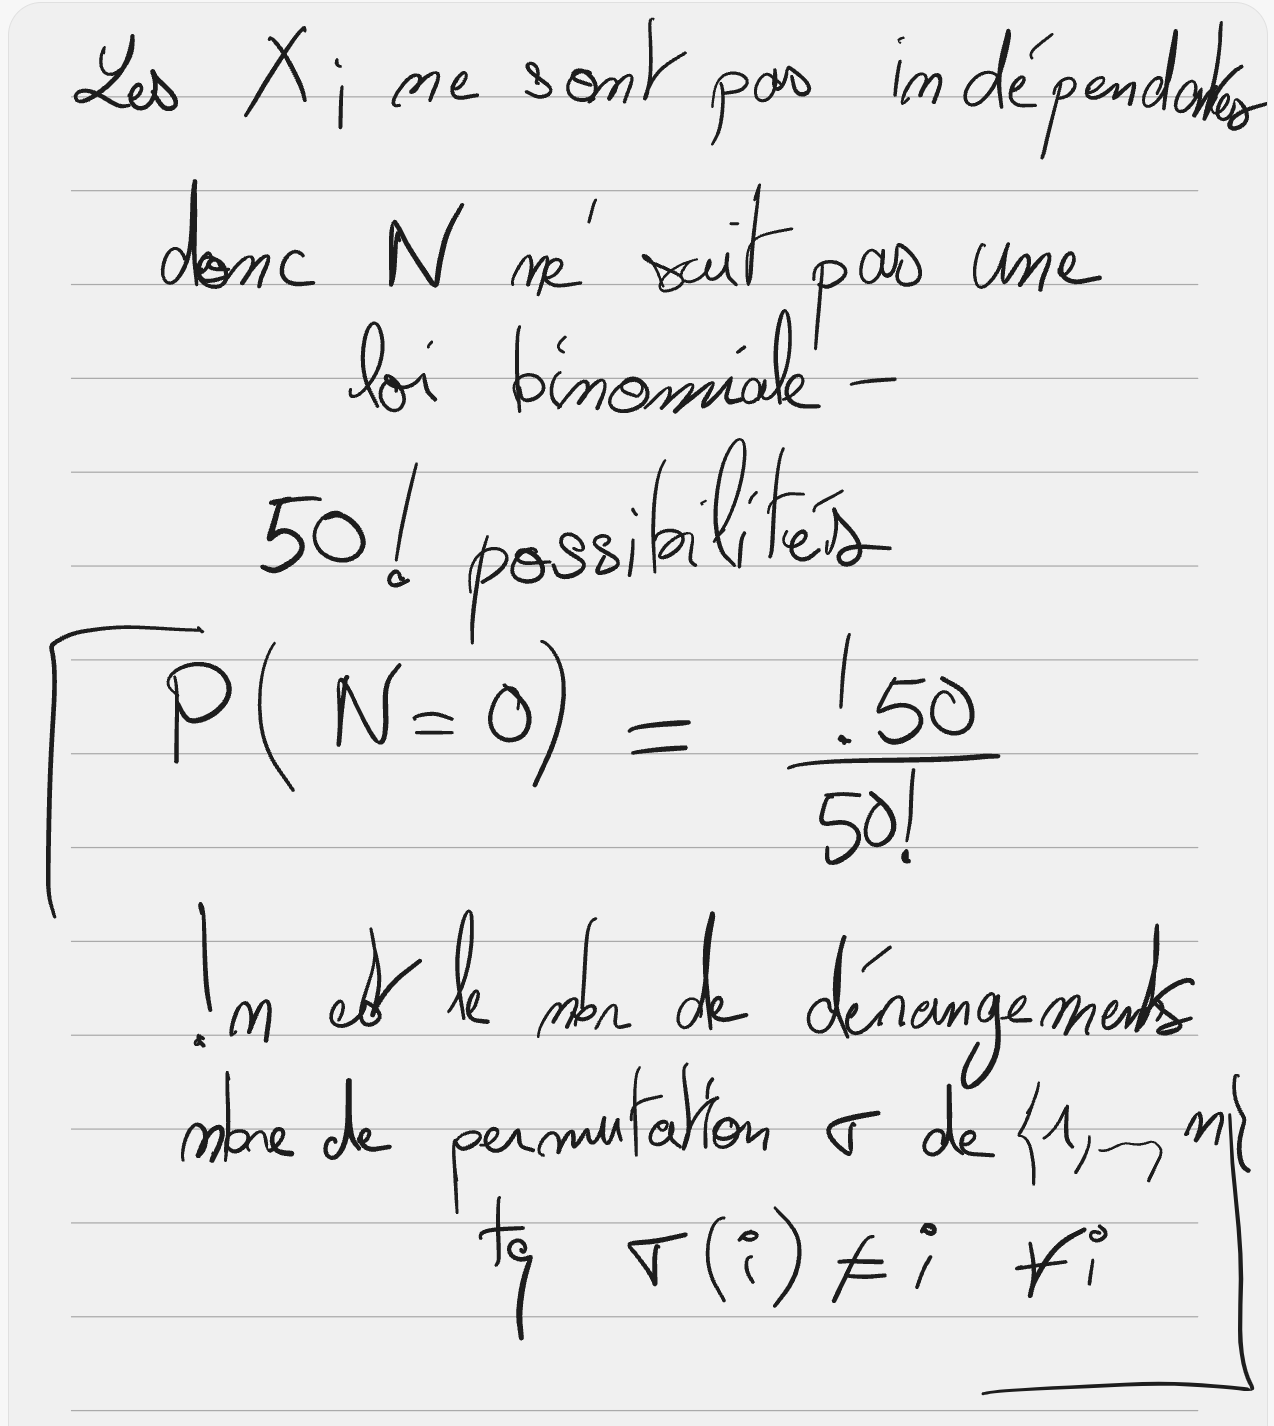 Les Xi ne sont pas indépendantes
donc N ne suit pas une
loi binomiale -
50! possibilités
P(N=0) = !50 / 50!
!n est le nbr de dérangements
nbre de permutation σ de {1,..., n}
tq σ(i) ≠ i ∀i